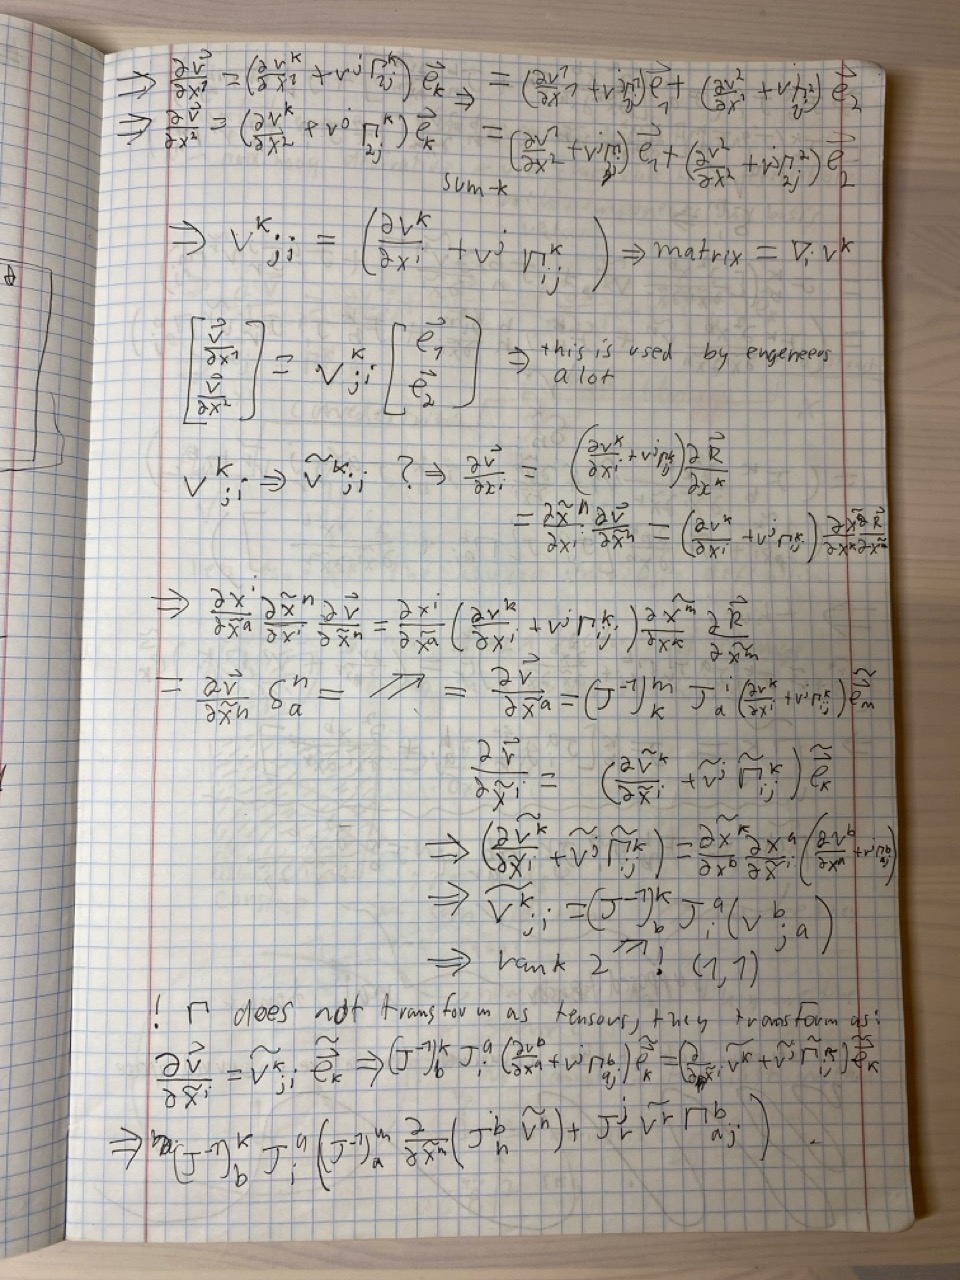 ⇒ ∂v⃗/∂x¹ = (∂vᵏ/∂x¹ + vʲ Γᵏ₂ⱼ) e⃗ₖ ⇒ = (∂v¹/∂x¹ + vʲΓ¹ⱼ) e⃗₁ + (∂v²/∂x¹ + vʲΓ²ⱼ) e⃗₂
⇒ ∂v⃗/∂x² = (∂vᵏ/∂x² + vʲ Γᵏ₂ⱼ) e⃗ₖ = (∂v¹/∂x² + vʲΓ¹₂ⱼ) e⃗₁ + (∂v²/∂x² + vʲΓ²₂ⱼ) e⃗₂
sum-k
⇒ vᵏ;ᵢ = (∂vᵏ/∂xⁱ + vʲ Γᵏᵢⱼ) ⇒ matrix = ∇ᵢ vᵏ
[v⃗/∂x¹ v⃗/∂x²] = vᵏ;ᵢ [e⃗₁ e⃗₂] ⇒ this is used by engeneers
a lot
vᵏ;ᵢ ⇒ ṽᵏ;ᵢ ? ⇒ ∂v⃗/∂xⁱ = (∂vᵏ/∂xⁱ + vʲΓᵏᵢⱼ) ∂R⃗/∂xᵏ
= ∂x̃ⁿ/∂xⁱ ∂v⃗/∂x̃ⁿ = (∂vᵏ/∂xⁱ + vʲΓᵏᵢⱼ) ∂x̃ᵐ/∂xᵏ ∂R⃗/∂x̃ᵐ
⇒ ∂xⁱ/∂x̃ᵃ ∂x̃ⁿ/∂xⁱ ∂v⃗/∂x̃ⁿ = ∂xⁱ/∂x̃ᵃ (∂vᵏ/∂xⁱ + vʲΓᵏᵢⱼ) ∂x̃ᵐ/∂xᵏ ∂R⃗/∂x̃ᵐ
= ∂v⃗/∂x̃ⁿ δⁿₐ = ⇗ = ∂v⃗/∂x̃ᵃ = (J⁻¹)ᵐₖ Jⁱₐ (∂vᵏ/∂xⁱ + vʲΓᵏᵢⱼ) ẽ⃗ₘ
∂v⃗/∂x̃ⁱ = (∂ṽᵏ/∂x̃ⁱ + ṽʲ Γ̃ᵏᵢⱼ) ẽ⃗ₖ
⇒ (∂ṽᵏ/∂x̃ⁱ + ṽʲ Γ̃ᵏᵢⱼ) = ∂x̃ᵏ/∂xᵇ ∂xᵃ/∂x̃ⁱ (∂vᵇ/∂xᵃ + vʲΓᵇₐⱼ)
⇒ ṽᵏ;ᵢ = (J⁻¹)ᵏ_b Jᵃᵢ (vᵇ;ₐ)
⇒ rank 2 ⇗ ! (1,1)
! Γ does not transform as tensors, they transform as:
∂v⃗/∂x̃ⁱ = ṽᵏ;ᵢ ẽ⃗ₖ ⇒ (J⁻¹)ᵏ_b Jᵃᵢ (∂vᵇ/∂xᵃ + vʲΓᵇₐⱼ) ẽ⃗ₖ = (∂/∂x̃ⁱ ṽᵏ + ṽʲ Γ̃ᵏᵢⱼ) ẽ⃗ₖ
⇒ (J⁻¹)ᵏ_b Jᵃᵢ ((J⁻¹)ᵐₐ ∂/∂x̃ᵐ (Jᵇₙ ṽⁿ) + Jʲᵣ ṽʳ Γᵇₐⱼ)